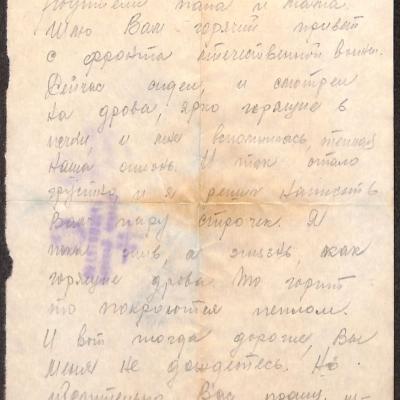 папа и мама.
Шлю Вам горячий привет
с фронта отечественной войны.
Сейчас сидел, и смотрел
на дрова, ярко горящие в
печи, и мне вспомнилась
наша жизнь. И так стало
грустно, и я решил написать
Вам пару строчек. Я
пока жив, а жизнь, как
горящие дрова. То горит
то покроются пеплом.
И вот тогда дорогие, Вы
меня не дождетесь. Но
Вас прошу,